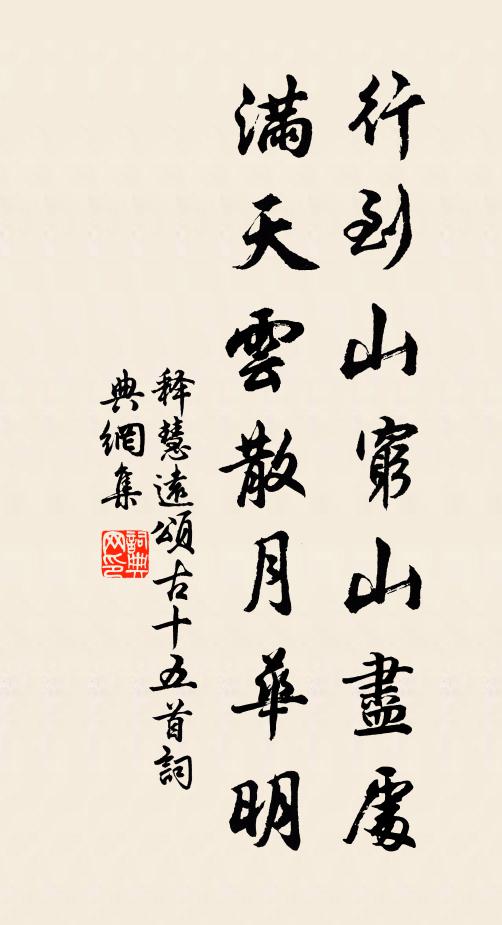 行到山窮山盡處
滿天雲散月華明
释慧遠頌古十五首詞
典網集
詞典
网印